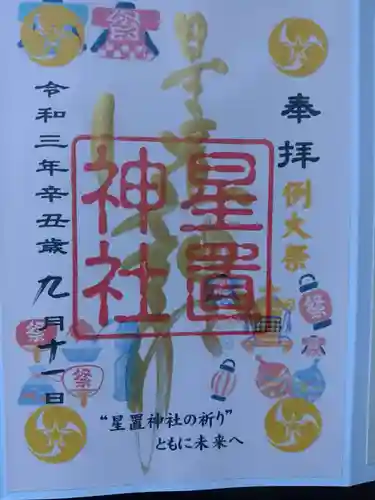 奉拝
例大祭
星置神社
星置神社
令和三年辛丑歳
九月十一日
祭
祭
祭
祭
"星置神社の祈り"
ともに未来へ